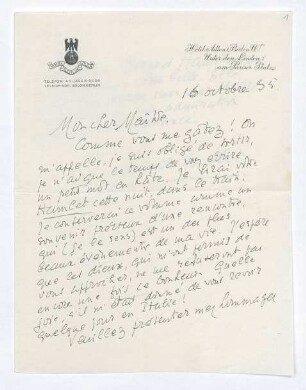 1
Hôtel Adlon / Berlin W.
Unter den Linden 1
am Pariser Platz
16 octobre 35
Mon cher Maître.
Comme vous me gâtez! On
m'appelle, je suis obligé de sortir,
je n'ai que le temps de vous écrire
un petit mot en hâte. Je lirai votre
Hamlet cette nuit, dans le train.
Je conserverai ce volume comme un
souvenir précieux d'une rencontre,
qui (je le sens) est un des plus
beaux événements de ma vie. J'espère
que les dieux, qui m'ont permis de
vous approcher, ne me refuseront pas
encore une fois ce bonheur. Quelle
joie, s'il m'était donné de vous revoir
quelque jour en Italie!
Veuillez présenter mes hommages